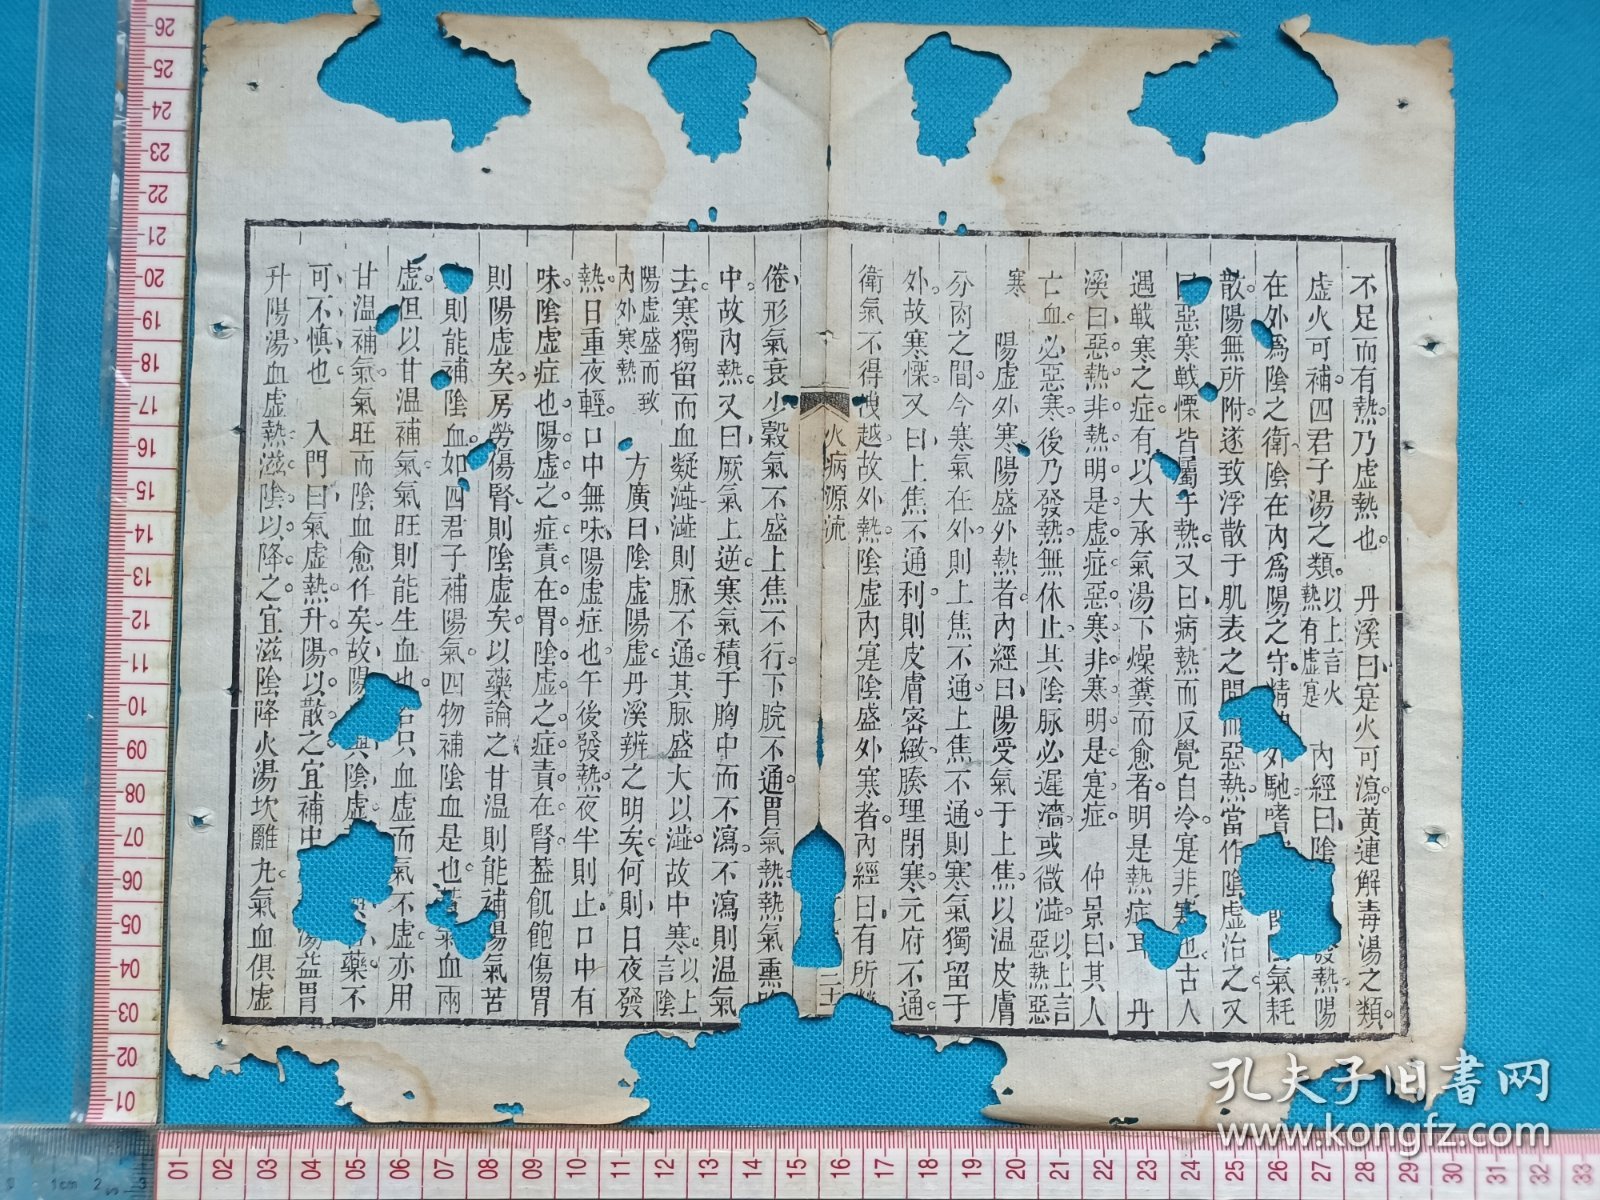 不足而有熱乃虛熱也　丹溪曰寔火可瀉黃連解毒湯之類
虛火可補四君子湯之類以上言火熱有虛寔　內經曰陰發熱陽
在外爲陰之衛陰在內爲陽之守精外馳嗜氣耗
散陽無所附遂致浮散于肌表之間而惡熱當作陰虛治之又
曰惡寒戰慄皆屬于熱又曰病熱而反覺自冷寔非寒也古人
遇戰寒之症有以大承氣湯下燥糞而愈者明是熱症耳　丹
溪曰惡熱非熱明是虛症惡寒非寒明是寔症　仲景曰其人
亡血必惡寒後乃發熱無休止其陰脉必遲濇或微澁以上言惡熱惡
寒　陽虛外寒陽盛外熱者內經曰陽受氣于上焦以温皮膚
分肉之間今寒氣在外則上焦不通上焦不通則寒氣獨留于
外故寒慄又曰上焦不通利則皮膚密緻腠理閉寒元府不通
衛氣不得洩越故外熱陰虛內寔陰盛外寒者內經曰有所勞
火病源流
二十
倦形氣衰少穀氣不盛上焦不行下脘不通胃氣熱熱氣熏胸
中故內熱又曰厥氣上逆寒氣積于胸中而不瀉不瀉則温氣
去寒獨留而血凝澁澁則脉不通其脉盛大以澁故中寒以上言陰
陽虛盛而致內外寒熱　方廣曰陰虛陽虛丹溪辨之明矣何則日夜發
熱日重夜輕口中無味陽虛症也午後發熱夜半則止口中有
味陰虛症也陽虛之症責在胃陰虛之症責在腎葢飢飽傷胃
則陽虛矣房勞傷腎則陰虛矣以藥論之甘温則能補陽氣苦
則能補陰血如四君子補陽氣四物補陰血是也氣血兩
虛但以甘温補氣氣旺則能生血也只血虛而氣不虛亦用
甘温補氣氣旺而陰血愈作矣故陽與陰虛藥不
可不慎也　入門曰氣虛熱升陽以散之宜補中湯益胃
升陽湯血虛熱滋陰以降之宜滋陰降火湯坎離九氣血俱虛
孔夫子旧書网
www.kongfz.com